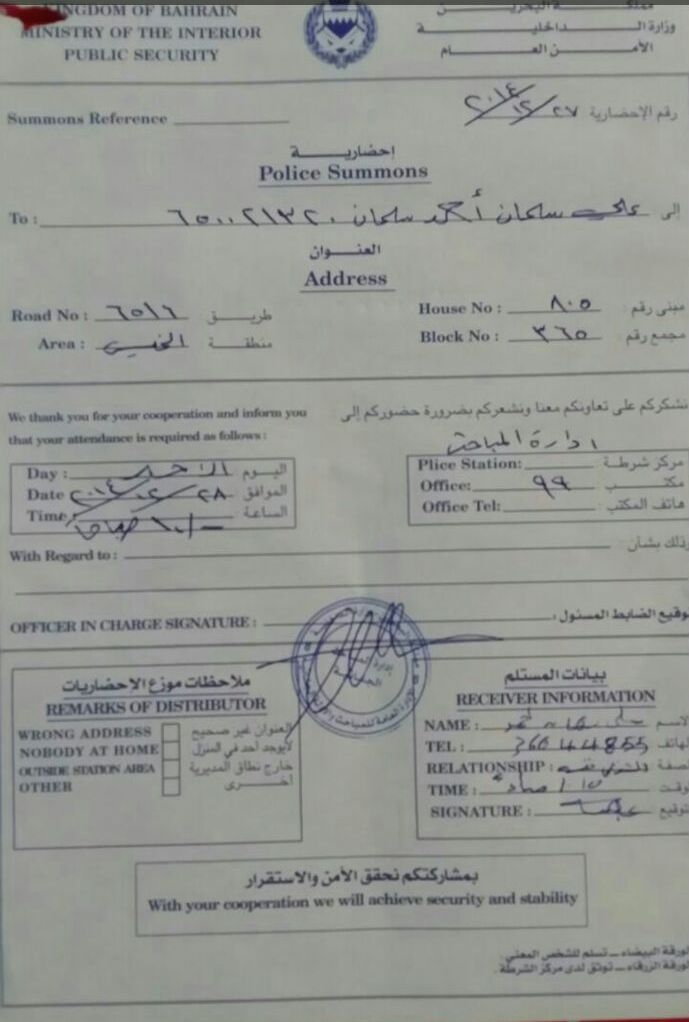 KINGDOM OF BAHRAIN
MINISTRY OF THE INTERIOR
PUBLIC SECURITY
مملكة البحرين
وزارة الداخلية
الأمن العام
Summons Reference
رقم الإحضارية ٢٠١٤/١٢/٢٧
إحضارية
Police Summons
To : علي سلمان أحمد سلمان إلى
العنوان
Address
Road No : ٦٥١٦ طريق
House No : ٨٠٥ مبنى رقم
Area : الخميس منطقة
Block No : ٣٦٥ مجمع رقم
We thank you for your cooperation and inform you
that your attendance is required as follows :
نشكركم على تعاونكم معنا ونشعركم بضرورة حضوركم إلى
ادارة المباحث
Day : الاحد اليوم
Date ٢٠١٤/١٢/٢٨ الموافق
Time ١٠/- صباحا الساعة
Plice Station: مركز شرطة
Office: ٩٩ مكتب
Office Tel: هاتف المكتب
With Regard to : وذلك بشأن
OFFICER IN CHARGE SIGNATURE : توقيع الضابط المسئول :
ملاحظات موزع الاحضاريات
REMARKS OF DISTRIBUTOR
WRONG ADDRESS العنوان غير صحيح
NOBODY AT HOME لايوجد أحد في المنزل
OUTSIDE STATION AREA خارج نطاق المديرية
OTHER أخرى
بيانات المستلم
RECEIVER INFORMATION
NAME : الاسم
TEL : 36044855 الهاتف
RELATIONSHIP : الصفة
TIME : الوقت
SIGNATURE : التوقيع
بمشاركتكم نحقق الأمن والاستقرار
With your cooperation we will achieve security and stability
الورقة البيضاء ــ تسلم للشخص المعني
الورقة الزرقاء ــ توثق لدى مركز الشرطة